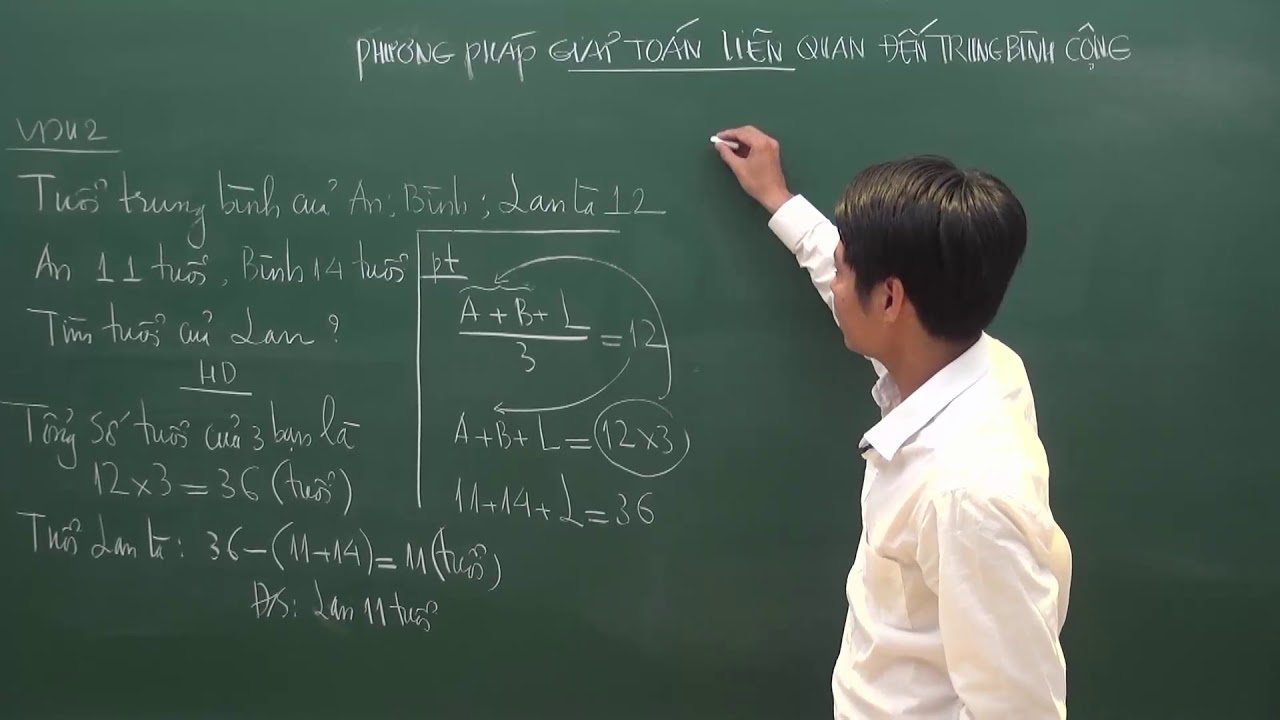 PHƯƠNG PHÁP GIẢI TOÁN LIÊN QUAN ĐẾN TRUNG BÌNH CỘNG
VDụ 2
Tuổi trung bình của An; Bình; Lan là 12
An 11 tuổi, Bình 14 tuổi
Tìm tuổi của Lan?
HD
Tổng số tuổi của 3 bạn là
12×3=36 (tuổi)
Tuổi Lan là: 36-(11+14)=11(tuổi)
ĐS: Lan 11 tuổi
pt
A+B+L
3
=12
A+B+L=12×3
11+14+L=36